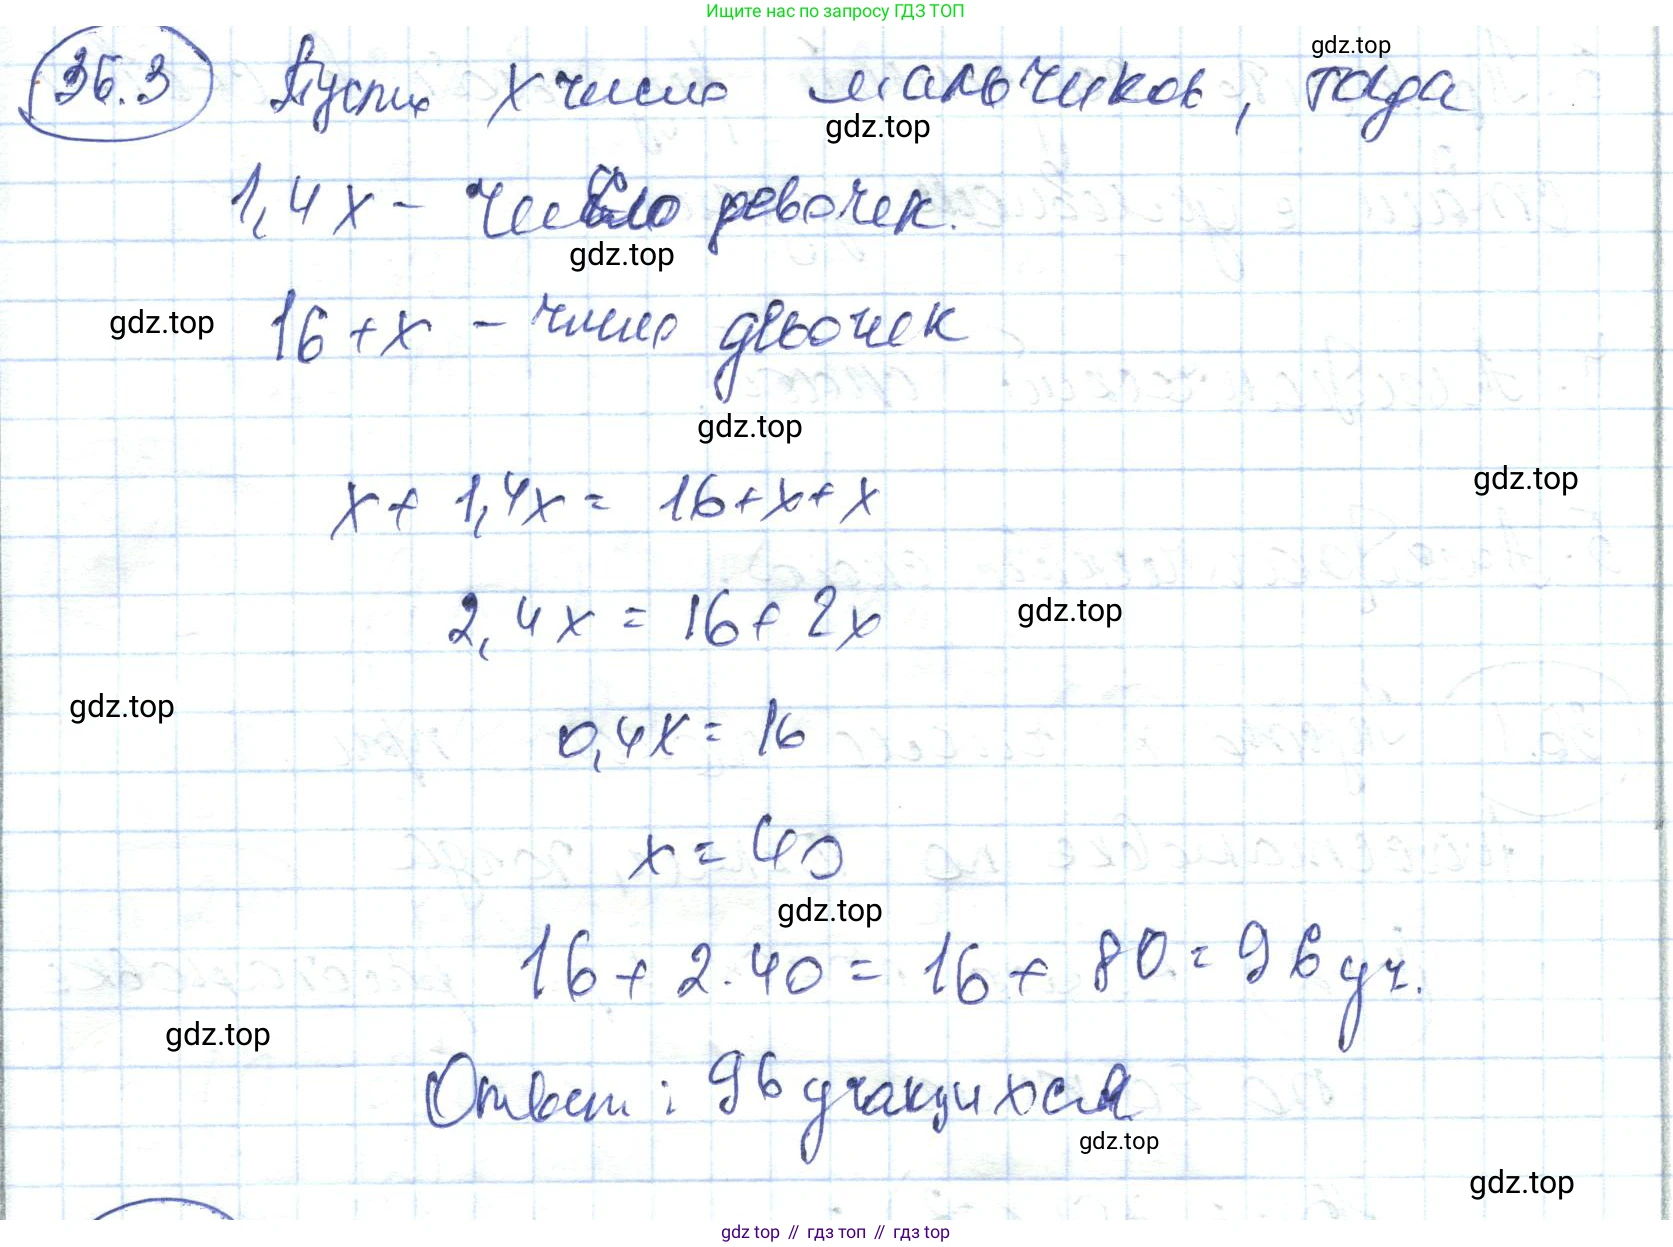 Ищите нас по запросу ГДЗ ТОП
gdz.top
36.3 Пусть x число мальчиков, тогда
gdz.top
1,4x - число девочек.
gdz.top
16 + x - число девочек
gdz.top
gdz.top
x + 1,4x = 16 + x + x
gdz.top
2,4x = 16 + 2x
gdz.top
0,4x = 16
gdz.top
x = 40
gdz.top
16 + 2 · 40 = 16 + 80 = 96 уч.
gdz.top
Ответ: 96 учащихся
gdz.top
gdz.top
gdz top // гдз топ // гдз top